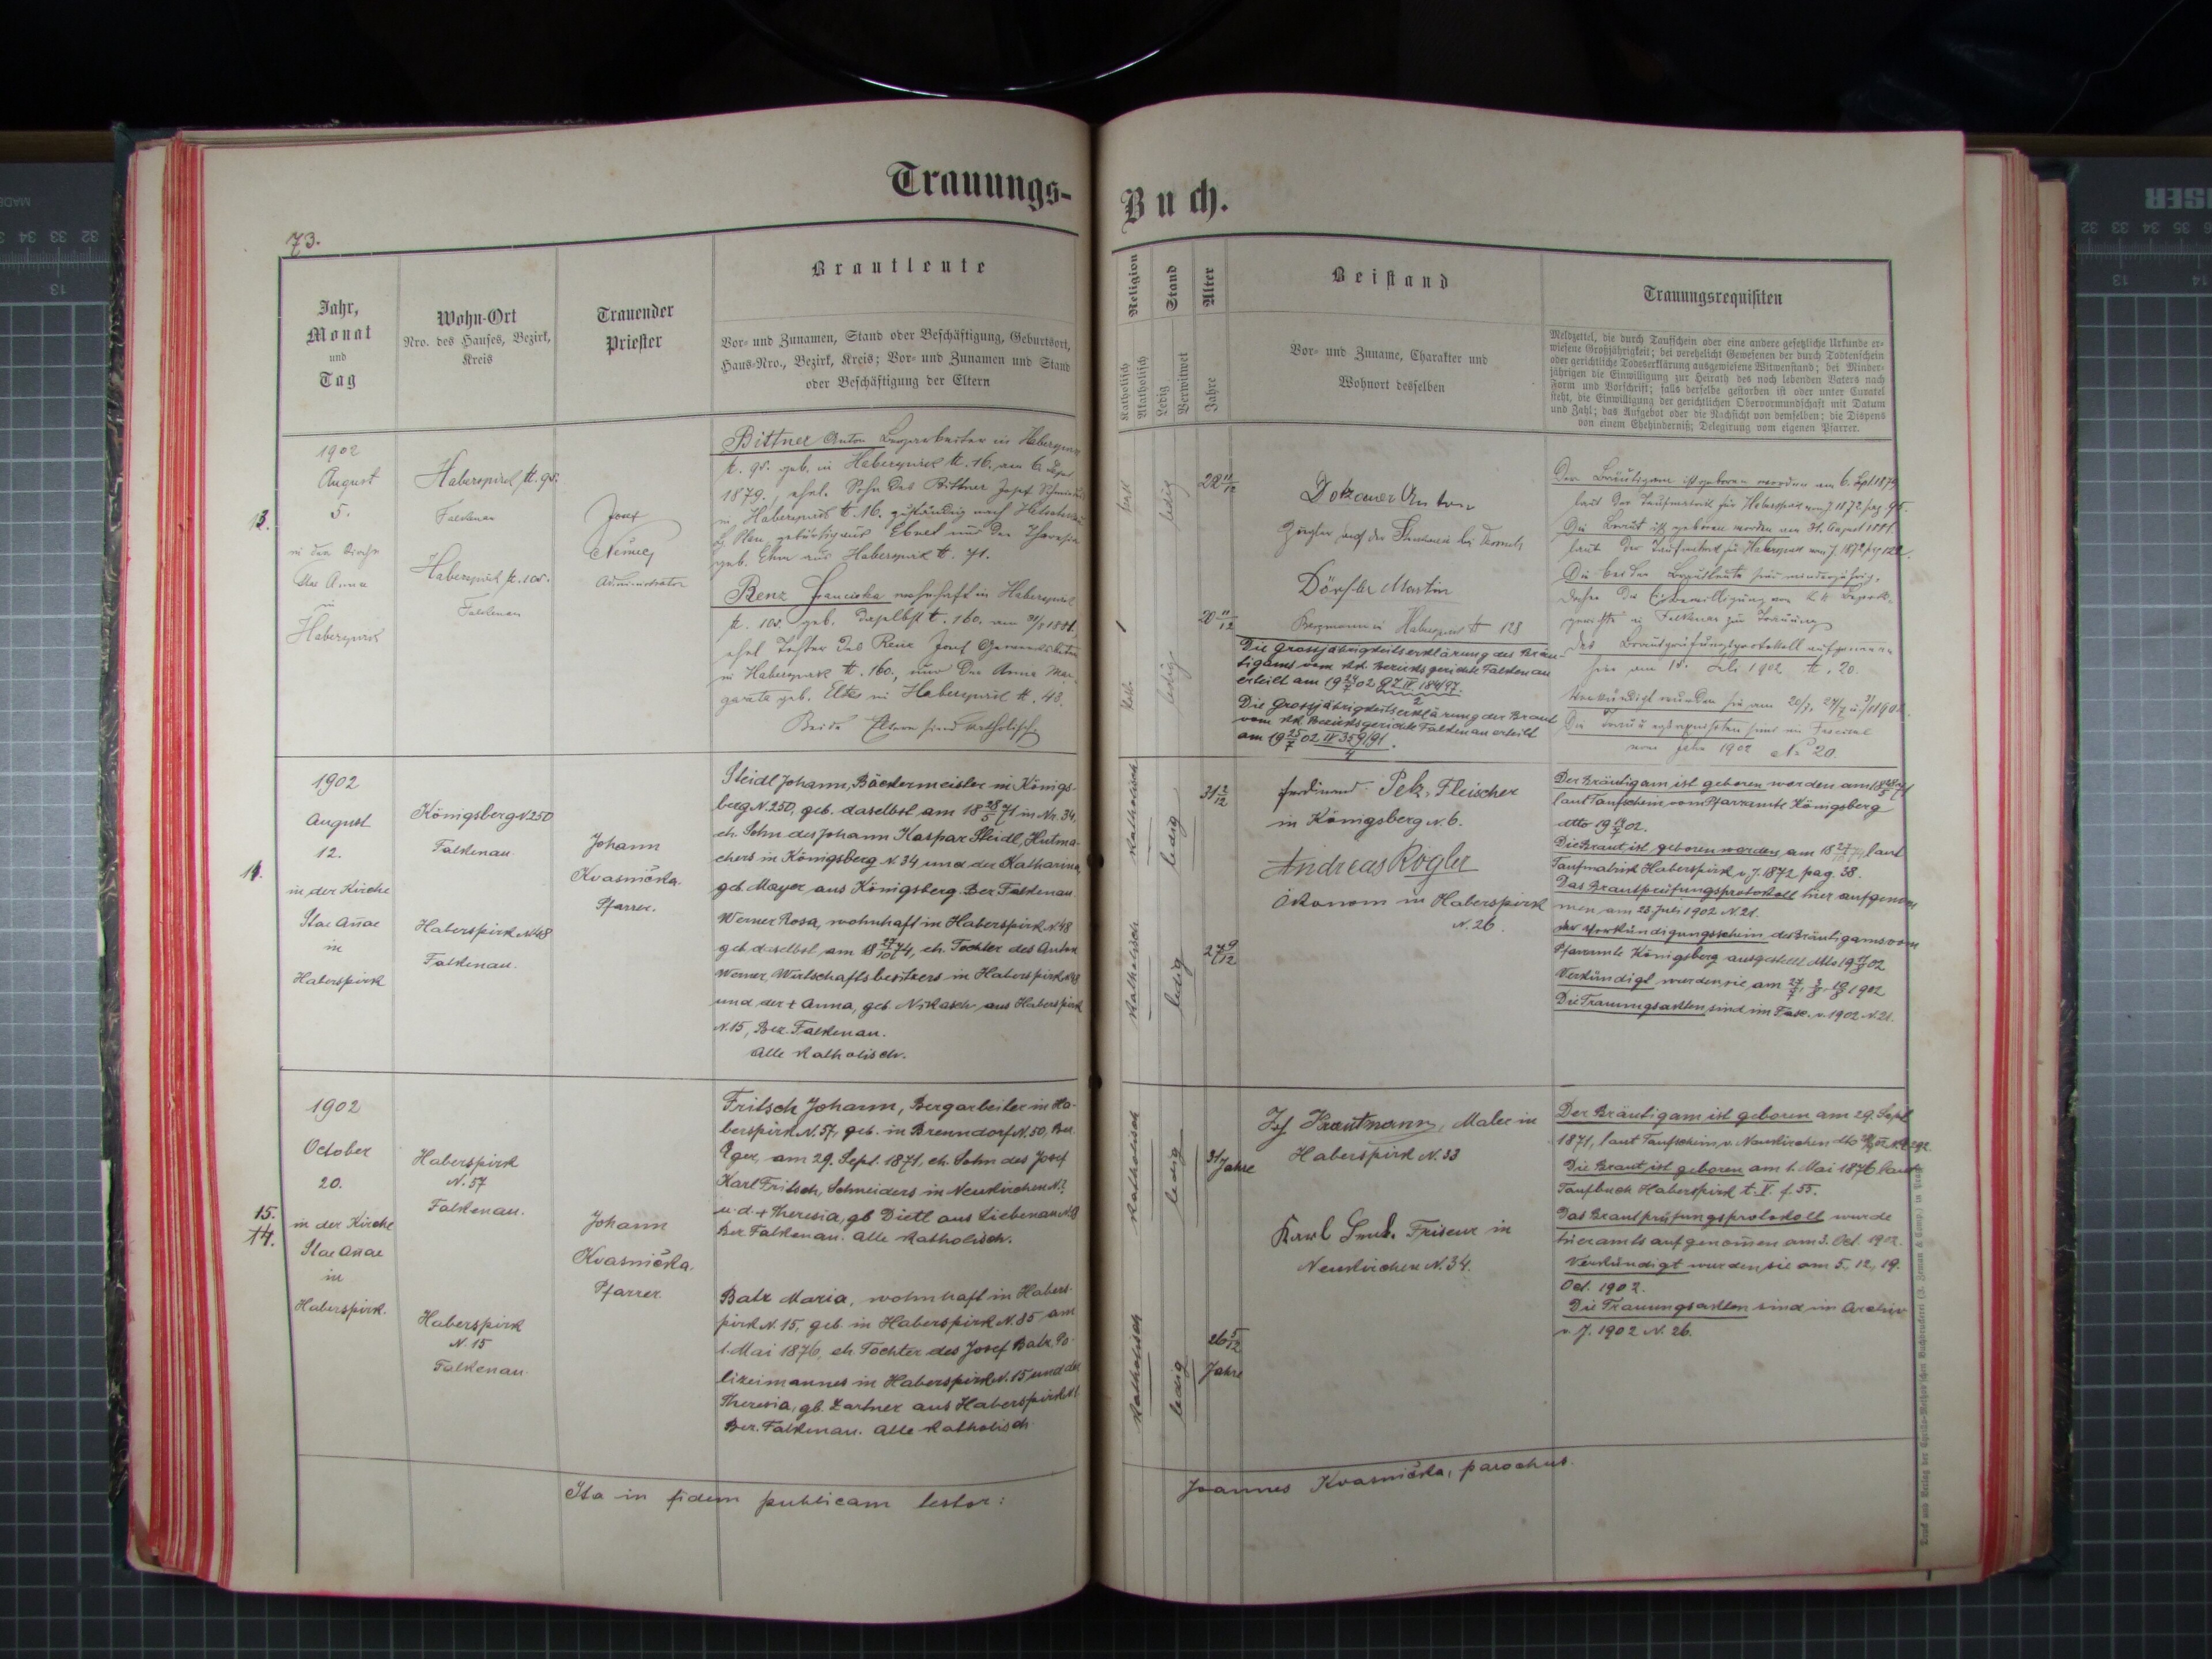 Trauungs-
Buch.
73.
Jahr,
Monat
und
Tag
Wohn-Ort
Nro. des Hauses, Bezirk,
Kreis
Trauender
Priester
Brautleute
Vor- und Zunamen, Stand oder Beschäftigung, Geburtsort,
Haus-Nro., Bezirk, Kreis; Vor- und Zunamen und Stand
oder Beschäftigung der Eltern
Religion
Katholisch
Akatholisch
Stand
Ledig
Verwitwet
Alter
Jahre
Beistand
Vor- und Zuname, Charakter und
Wohnort desselben
Trauungsrequisiten
Meldzettel, die durch Taufschein oder eine andere gesetzliche Urkunde er-
wiesene Großjährigkeit; bei verehelicht Gewesenen der durch Todtenschein
oder gerichtliche Todeserklärung ausgewiesene Witwenstand; bei Minder-
jährigen die Einwilligung zur Heirath des noch lebenden Vaters nach
Form und Vorschrift; falls derselbe gestorben ist oder unter Curatel
steht, die Einwilligung der gerichtlichen Obervormundschaft mit Datum
und Zahl; das Aufgebot oder die Nachsicht von demselben; die Dispens
von einem Ehehinderniß; Delegirung vom eigenen Pfarrer.
13.
1902
August
5.
in der Kirche
Stae Anna
in
Haberspirk
Haberspirk
Falkenau
Haberspirk
Falkenau
Josef
Némec
Administrator
Bittner Anton Bergarbeiter in Haberspirk
geb. in Haberspirk N. 16. am 6.
1879., ehel. Sohn des Bittner Josef
in Haberspirk N. 16. zuständig nach
gebürtig aus und der Theresia
geb. aus Haberspirk N. 71.
Renz Franciska wohnhaft in Haberspirk
geb. daselbst N. 160. am
ehel. Tochter des Renz Josef
in Haberspirk N. 160., und der Anna Mar-
gareta geb. in Haberspirk N. 43.
Beide Eltern sind katholisch
kath
ledig
22 11/12
kath.
ledig
20 11/12
Dotzauer Anton
Dörfler Martin
Bergmann in Haberspirk N 128
Die Grossjährigkeitserklärung des Bräu-
tigams vom kk. Bezirksgerichte Falkenau
erteilt am 19 24/7 02 GZ IV 184/97.
Die Grossjährigkeitserklärung der Braut
vom kk. Bezirksgerichte Falkenau erteilt
am 19 25/7 02 IV 359/91
4
Der Bräutigam ist geboren worden am 6. Sept 1879
laut der Taufmatrik für Haberspirk
Die Braut ist geboren worden am 31. August 1881.
laut der Taufmatrik für Haberspirk
Die beiden Brautleute sind minderjährig,
daher die Einwilligung vom k.k. Bezirks-
gerichte in Falkenau zur Trauung
Das Brautprüfungsprotokoll aufgenommen
1902 N. 20.
Verkündigt wurden sie am 20/7. 27/7
Die Trauungsrequisiten sind im Fascikel
vom Jahre 1902 No 20.
14.
1902
August
12.
in der Kirche
Stae Annae
in
Haberspirk
Königsberg N 250
Falkenau
Haberspirk N 48
Falkenau.
Johann
Kvasnička.
Pfarrer.
Steidl Johann, Bäckermeister in Königs-
berg N. 250, geb. daselbst am 18 28/5 71 in Nr. 34,
eh. Sohn des Johann Kaspar Steidl, Hutma-
chers in Königsberg N. 34 und der Katharina,
geb. Mayer aus Königsberg. Bez Falkenau.
Werner Rosa, wohnhaft in Haberspirk N. 48
geb. daselbst am 18 27/10 74, eh. Tochter des Anton
Werner, Wirtschaftsbesitzers in Haberspirk N 48
und der + Anna, geb. Niklasch aus Haberspirk
N. 15, Bez. Falkenau.
Alle katholisch.
katholisch
ledig
31 2/12
katholisch
ledig
27 9/12
Ferdinand Pelz, Fleischer
in Königsberg N. 6.
Andreas Rögler
Ökonom in Haberspirk
N. 26.
Der Bräutigam ist geboren worden am 18 28/5 71
laut Taufschein vom Pfarramte Königsberg
dtto 19 02.
Die Braut ist geboren worden am 18 27/10 74 laut
Taufmatrik Haberspirk v. J. 1872 pag. 38.
Das Brautprüfungsprotokoll hier aufgenom
men am 23. Juli 1902 N. 21.
Der Verkündigungsschein des Bräutigams vom
Pfarramte Königsberg ausgestellt dtto 19 02
Verkündigt wurden sie am 27/7, 3/8, 10/8 1902
Die Trauungsakten sind im Fasc. v. 1902 N. 21.
15.
14.
1902
October
20.
in der Kirche
Stae Annae
in
Haberspirk.
Haberspirk
N. 57
Falkenau.
Haberspirk
N. 15
Falkenau.
Johann
Kvasnička.
Pfarrer
Fritsch Johann, Bergarbeiter in Ha-
berspirk N. 57, geb. in Brenndorf N. 50, Bez.
Eger, am 29. Sept. 1871, eh. Sohn des Josef
Karl Fritsch, Schneiders in Neukirchen N.?,
u. d. + Theresia, gb Dietl aus Liebenau
Bez Falkenau. Alle katholisch.
Balz Maria, wohnhaft in Habers-
pirk N. 15, geb. in Haberspirk N. 85 am
1. Mai 1876, eh. Tochter des Josef Balz, Po-
lizeimannes in Haberspirk N. 15 und der
Theresia, gb. Zartner aus Haberspirk
Bez. Falkenau. Alle katholisch
katholisch
ledig
31 Jahre
katholisch
ledig
26 5/12
Jahre
Jos Krautmann, Maler in
Haberspirk N. 33
Karl Friseur in
Neukirchen N. 34.
Der Bräutigam ist geboren am 29. Sept
1871, laut Taufschein v. Neukirchen
Die Braut ist geboren am 1. Mai 1876 laut
Taufbuch Haberspirk t. V. f. 55.
Das Brautprüfungsprotokoll wurde
hieramts aufgenommen am 3. Oct. 1902.
Verkündigt wurden sie am 5., 12., 19.
Oct. 1902.
Die Trauungsakten sind im Archiv
v. J. 1902 N. 26.
Ita in fidem publicam testor:
Joannes Kvasnička, parochus.